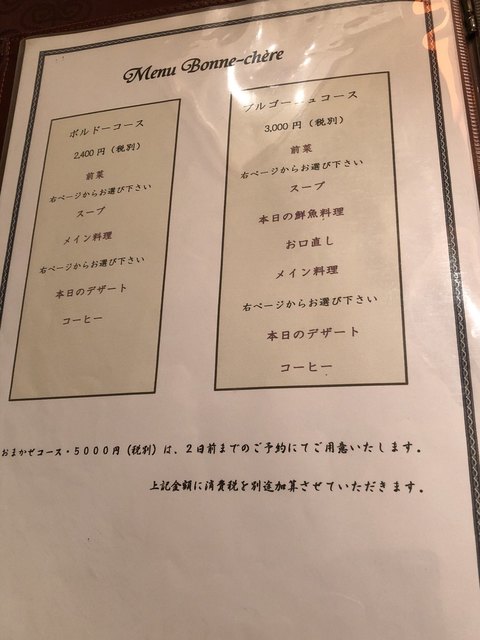 Menu Bonne-chère
ボルドーコース
2,400円（税別）
前菜
右ページからお選び下さい
スープ
メイン料理
右ページからお選び下さい
本日のデザート
コーヒー
ブルゴーニュコース
3,000円（税別）
前菜
右ページからお選び下さい
スープ
本日の鮮魚料理
お口直し
メイン料理
右ページからお選び下さい
本日のデザート
コーヒー
おまかせコース・５０００円（税別）は、２日前までのご予約にてご用意いたします。
上記金額に消費税を別途加算させていただきます。